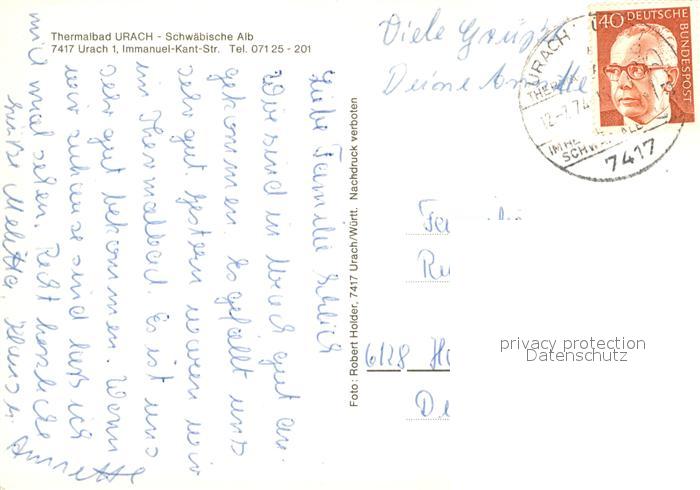 Thermalbad URACH - Schwäbische Alb
7417 Urach 1, Immanuel-Kant-Str. Tel. 071 25 - 201
Liebe Familie
Wir sind in Urach gut an-
gekommen. Es gefällt uns
sehr gut. Gestern waren wir
im Thermalbad. Es ist uns
sehr gut bekommen. Wenn
wir zuhause sind laß ich
mich mal sehen. Recht herzliche
Grüße Melitta, Klaus u. Annette
Foto: Robert Holder, 7417 Urach/Württ. Nachdruck verboten
Viele Grüße
Deine Annette
140 DEUTSCHE
BUNDESPOST
URACH
12.-7.74
IM HE
SCHW
7417
6128
privacy protection
Datenschutz